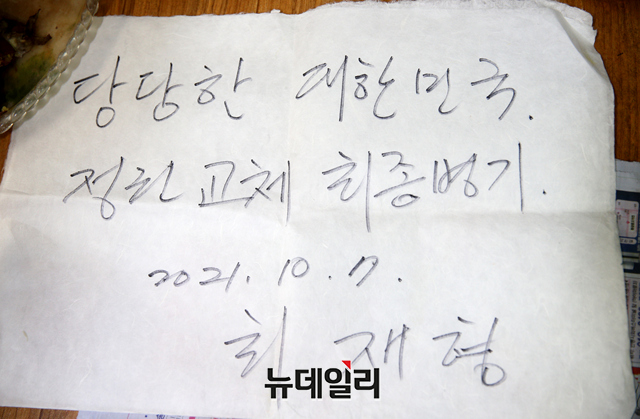 당당한 대한민국.
정권교체 최종병기.
2021. 10. 7.
최재형
뉴데일리